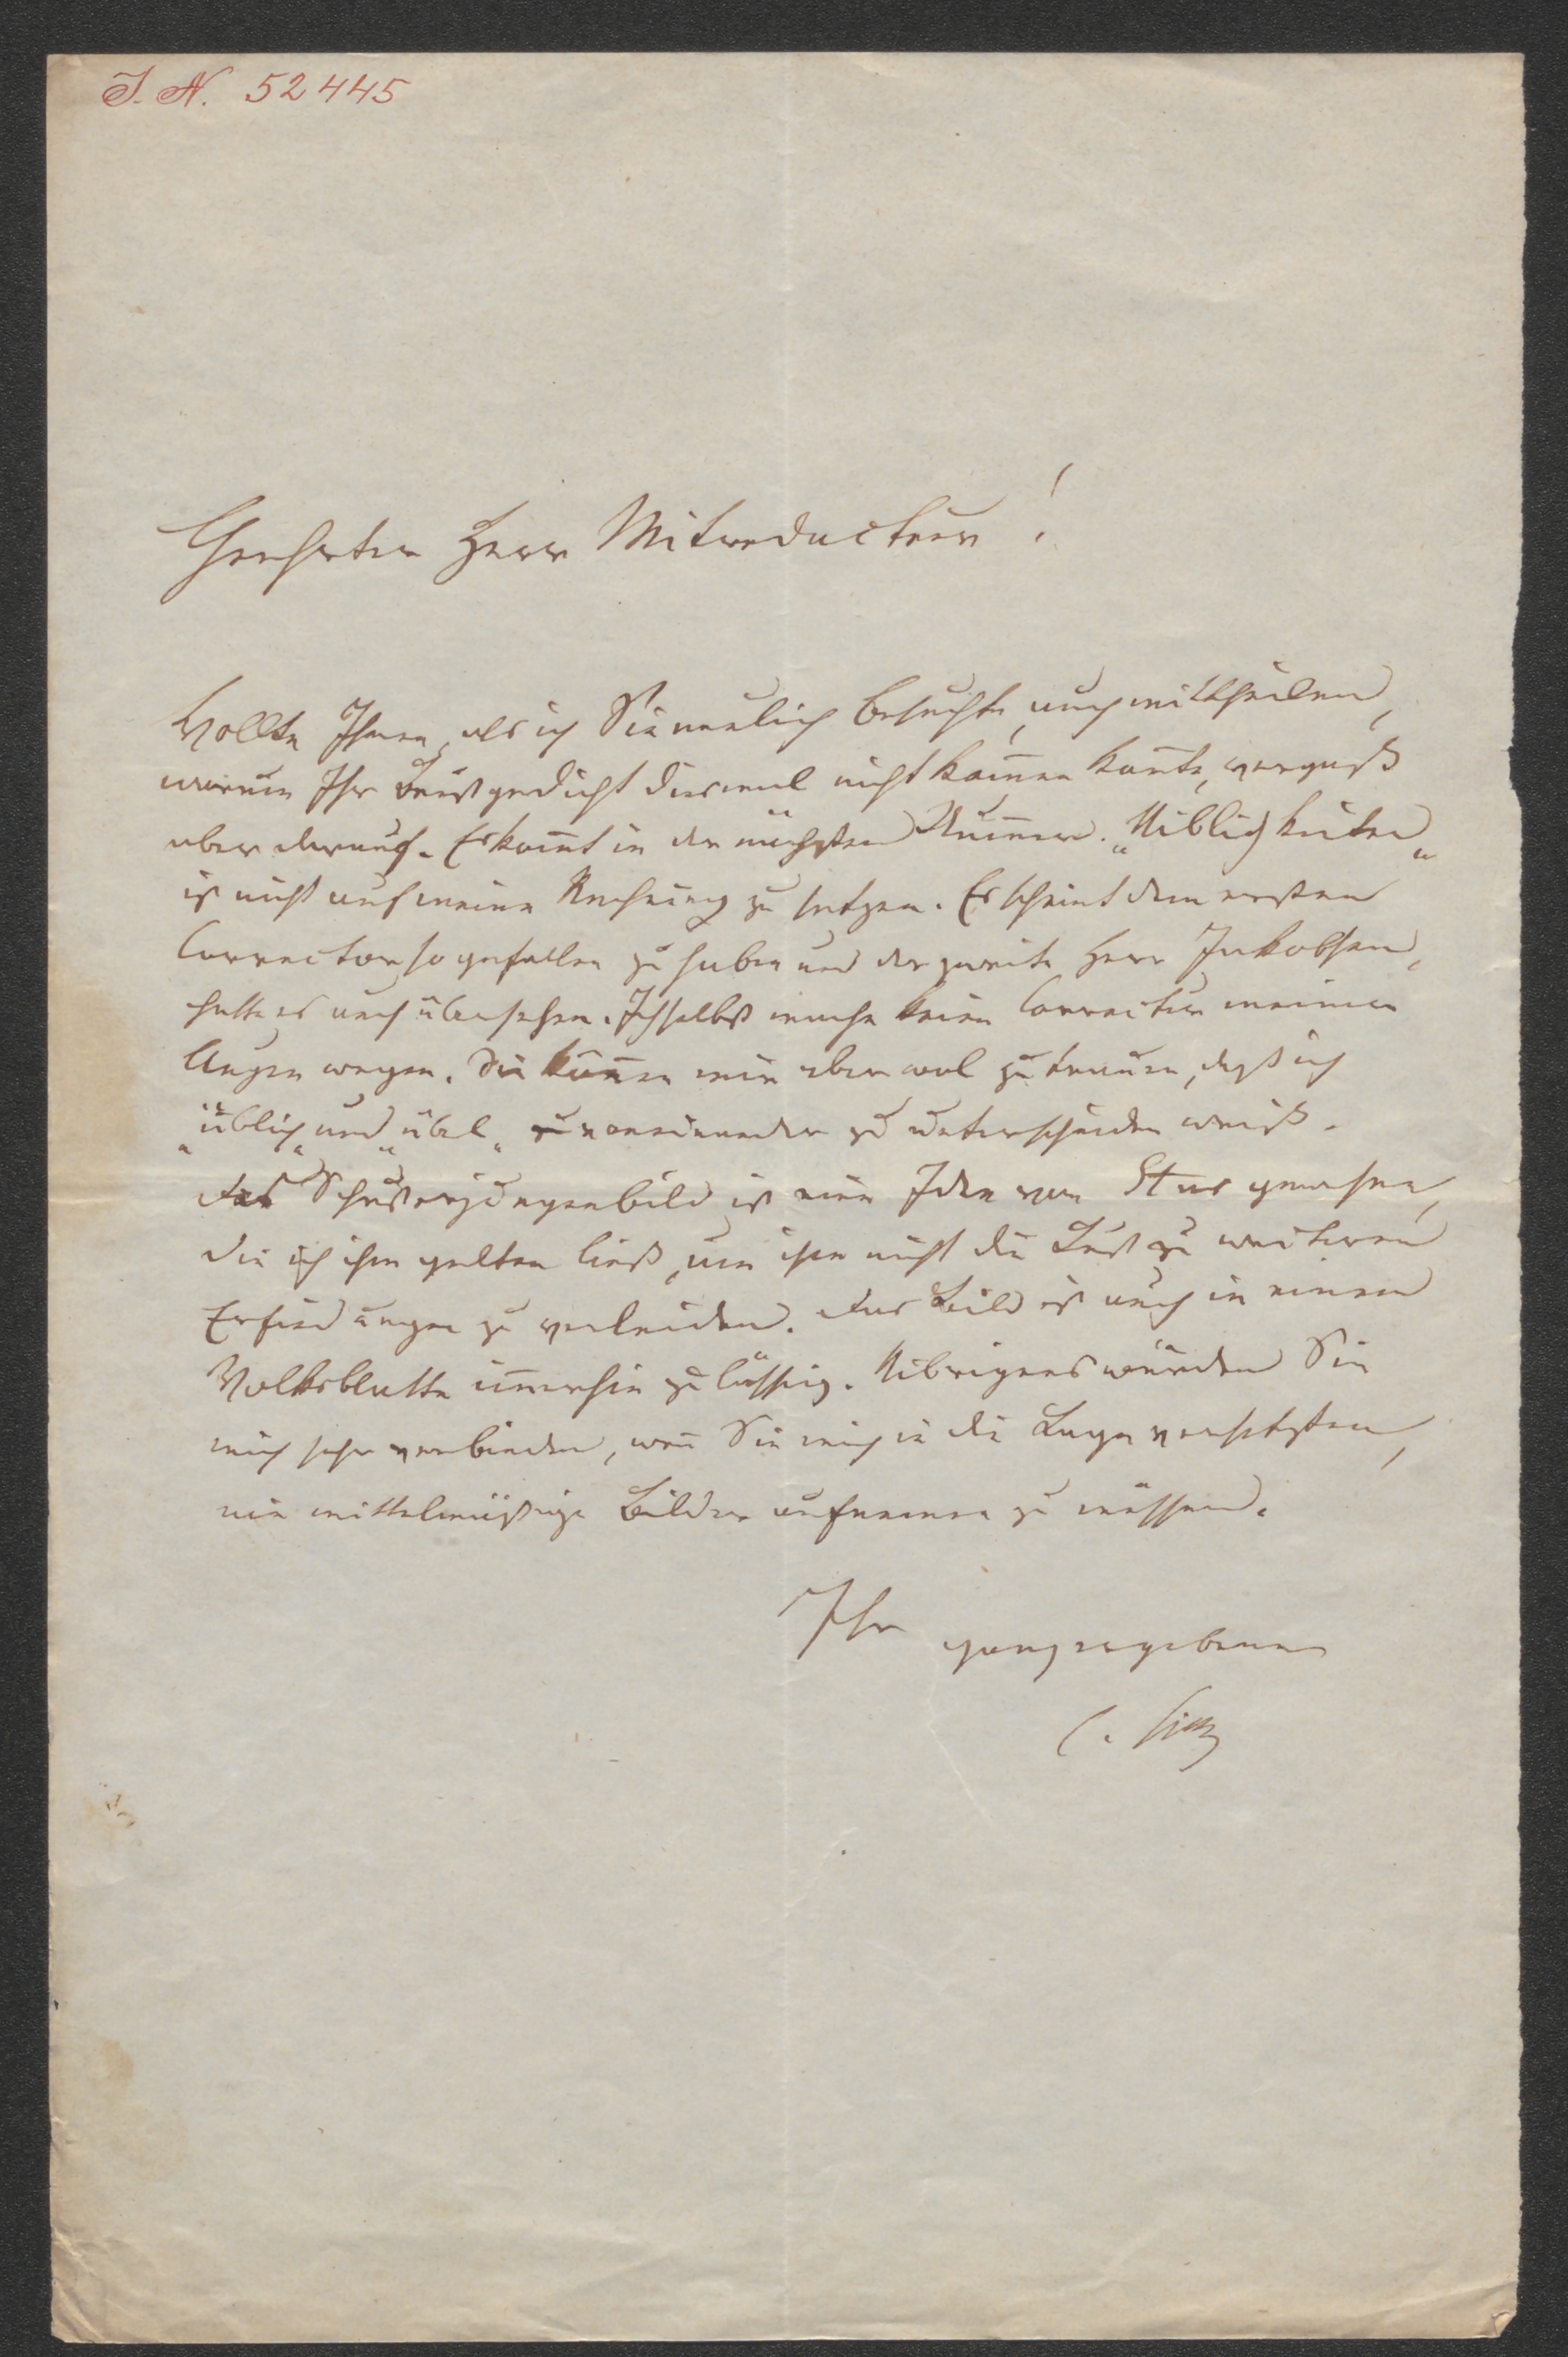 I. N. 52445
Geehrter Herr Mitredacteur!
Wollte Ihnen, als ich Sie neulich besuchte, auch mittheilen,
warum Ihr Faustgedicht diesmal nicht kom̄en kon̄te, vergaß
aber darauf. Es kom̄t in der nächsten Num̄er. „Uiblichkeiten“
ist nicht auf meine Rechnung zu setzen. Es scheint dem ersten
Corrector so gefallen zu haben und der zweite Herr Jakobsen,
hatte es auch übersehen. Ich selbst mache keine Correctur meiner
Augen wegen. Sie kön̄en mir aber wol zutrauen, daß ich
„üblich“ und „übel“ voneinander zu unterscheiden weiß.
Das Schusterjungenbild ist eine Idee von Stur gewesen,
die ich ihm gelten ließ, um ihm nicht die Lust zu weiteren
Erfindungen zu verleiden. Das Bild ist auch in einem
Volksblatte im̄erhin zulässig. Uibrigens würden Sie
mich sehr verbinden, wen̄ Sie mich in die Lage versetzten,
nie mittelmäßige Bilder aufnemen zu müssen.
Ihr ganz ergebener
C. Sitz